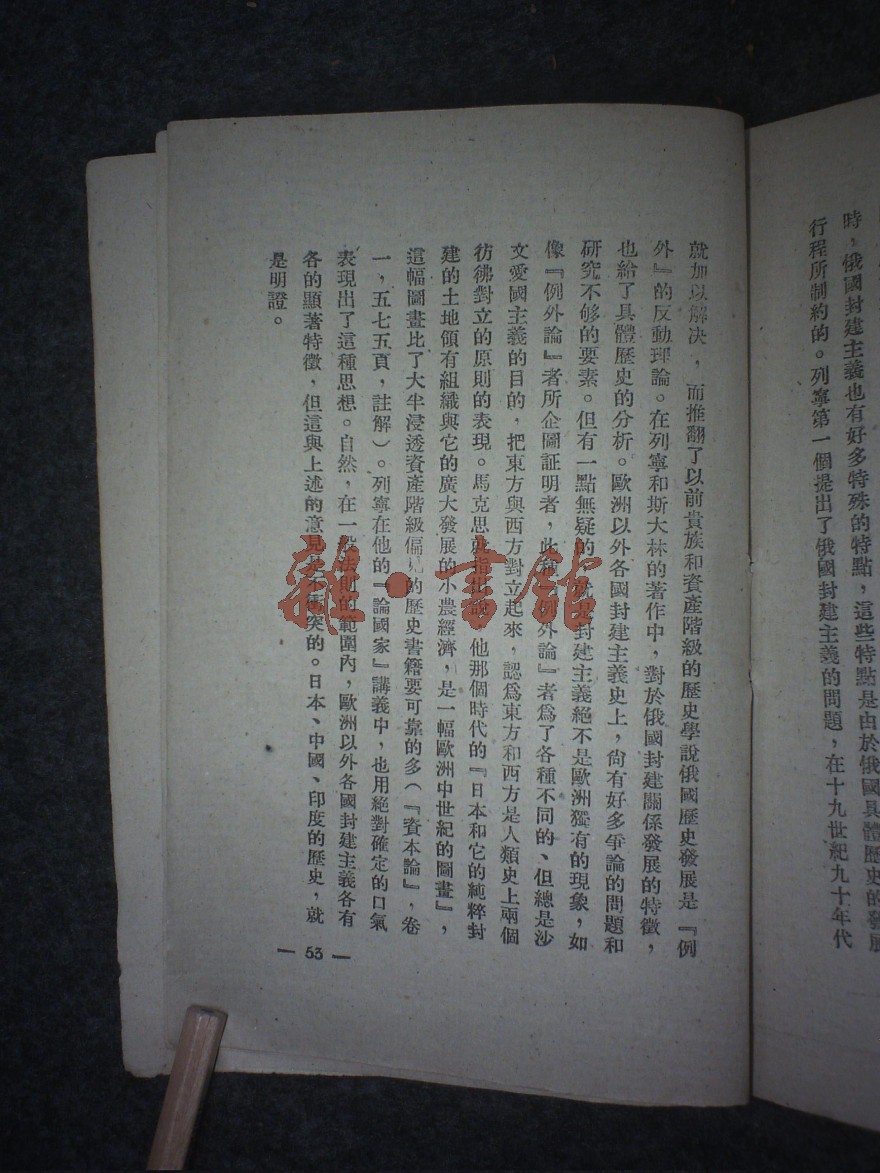 時，俄國封建主義也有好多特殊的特點，這些特點是由於俄國具體歷史的發展
行程所制約的。列寧第一個提出了俄國封建主義的問題，在十九世紀九十年代
就加以解決，而推翻了以前貴族和資產階級的歷史學說俄國歷史發展是『例
外』的反動理論。在列寧和斯大林的著作中，對於俄國封建關係發展的特徵，
也給了具體歷史的分析。歐洲以外各國封建主義史上，尙有好多爭論的問題和
研究不够的要素。但有一點無疑的，就是封建主義絕不是歐洲獨有的現象，如
像『例外論』者所企圖証明者，此種『例外論』者爲了各種不同的、但總是沙
文愛國主義的目的，把東方與西方對立起來，認爲東方和西方是人類史上兩個
彷彿對立的原則的表現。馬克思就指出說，他那個時代的『日本和它的純粹封
建的土地領有組織與它的廣大發展的小農經濟，是一幅歐洲中世紀的圖畫』，
這幅圖畫比了大半浸透資產階級偏見的歷史書籍要可靠的多（『資本論』，卷
一，五七五頁，註解）。列寧在他的『論國家』講義中，也用絕對確定的口氣
表現出了這種思想。自然，在一般法則的範圍內，歐洲以外各國封建主義各有
各的顯著特徵，但這與上述的意見是不衝突的。日本、中國、印度的歷史，就
是明證。
— 53 —
雜·書館